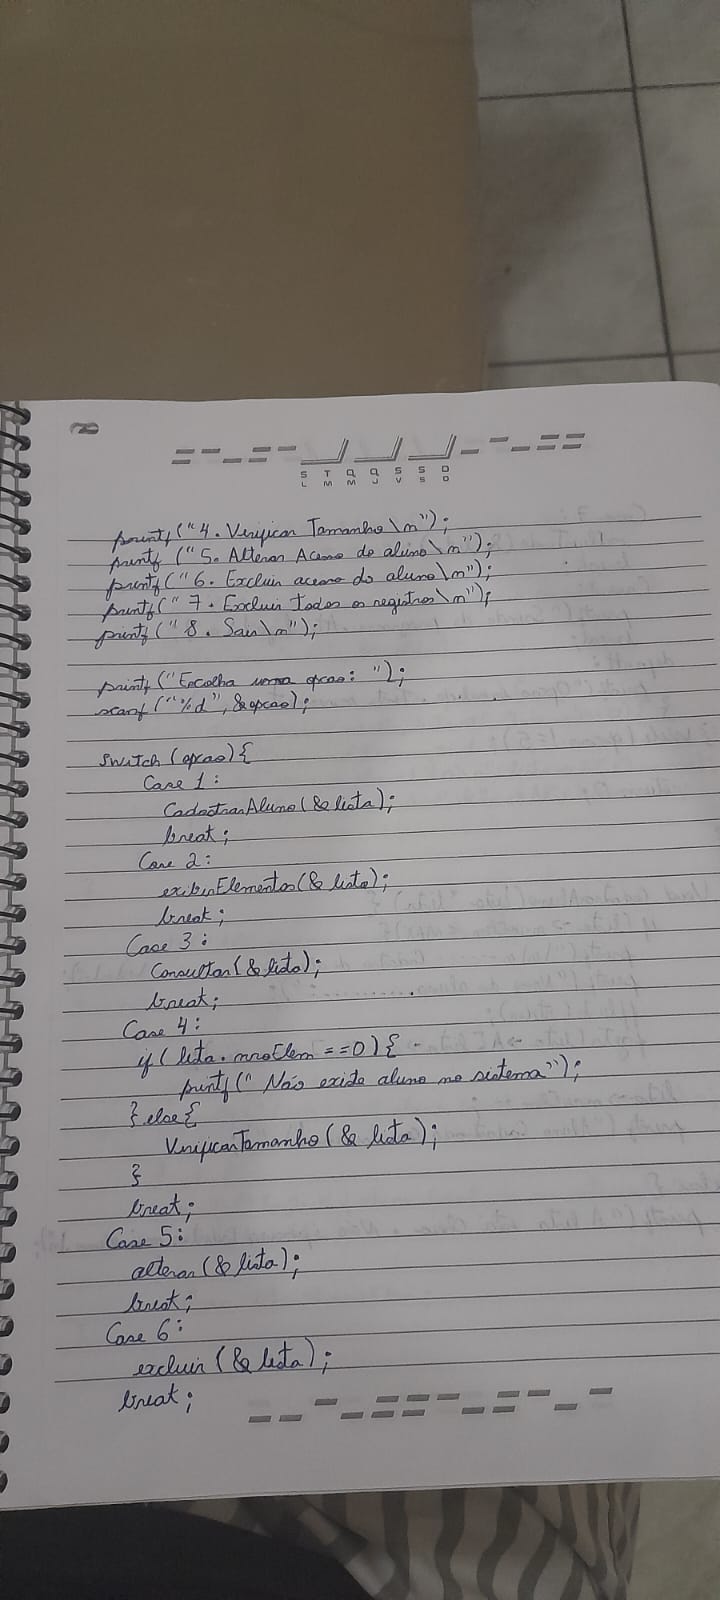 S T Q Q S S D
L M M J V S O
printf("4. Verificar Tamanho\n");
printf ("5. Alterar Acesso do aluno\n");
printf("6. Excluir acesso do aluno\n");
printf("7. Excluir todos os registros\n");
printf ("8. Sair\n");
printf ("Escolha uma opcao: ");
scanf ("%d", &opcao);
switch (opcao){
Case 1:
CadastrarAluno(& lista);
break;
Case 2:
exibirElementos(& lista);
break;
Case 3:
Consultar(& lista);
break;
Case 4:
if( lista. nroElem ==0){
printf(" Não existe aluno no sistema");
}else{
VerificarTamanho(& lista);
}
break;
Case 5:
alterar(& lista);
break;
Case 6:
excluir (& lista);
break;